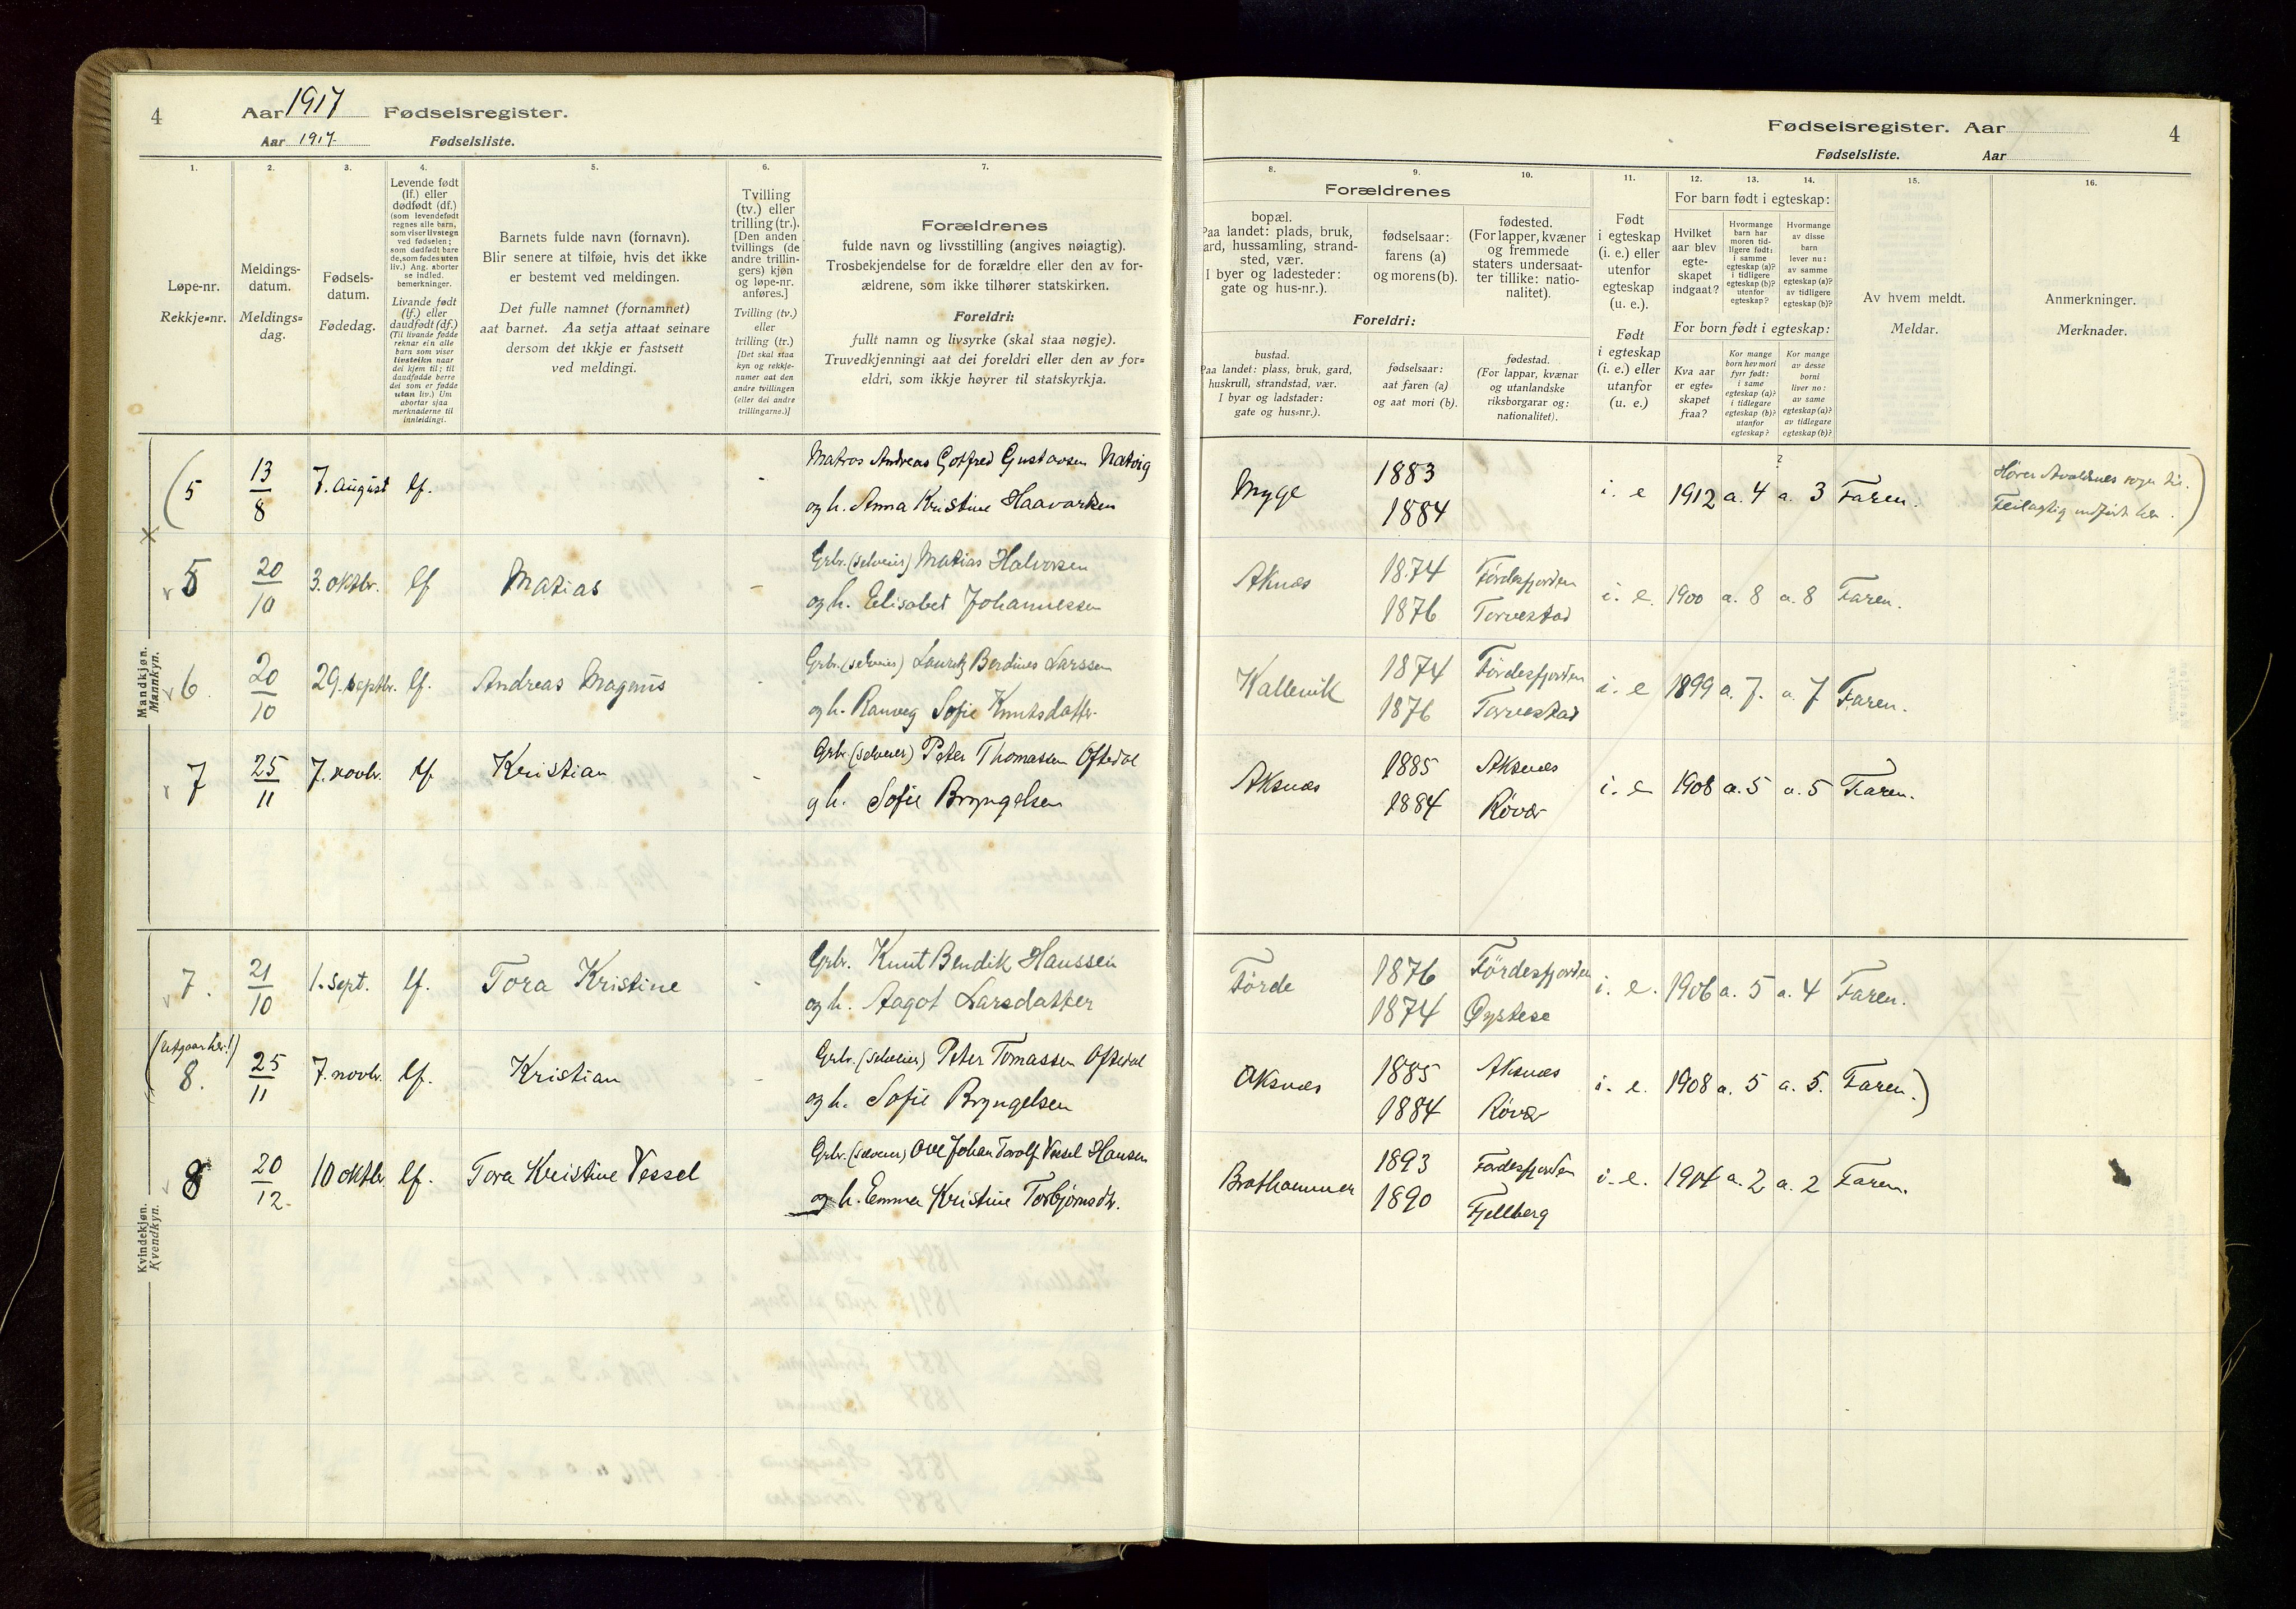 4 Aar 1917 Fødselsregister.
Aar 1917 Fødselsliste.
Fødselsregister. Aar 4
Fødselsliste. Aar
1. 2. 3. 4. 5. 6. 7. 8. 9. 10. 11. 12. 13. 14. 15. 16.
Løpe-nr.
Rekkje-nr.
Meldings-
datum.
Meldings-
dag.
Fødsels-
datum.
Fødedag.
Levende født
(lf.) eller
dødfødt (df.)
(som levendefødt
regnes alle barn,
som viser livstegn
ved fødselen;
som dødfødt bare
de, som fødes uten
liv.) Ang. aborter
se indled.
bemerkninger.
Livande født
(lf.) eller
daudfødt (df.)
(Til livande fødde
reknar ein alle
barn som viser
livsteikn naar
dei kjem til; til
daudfødde berre
dei som er fødde
utan liv.) Um
abortar sjaa
merknaderne til
innleidingi.
Barnets fulde navn (fornavn).
Blir senere at tilføie, hvis det ikke
er bestemt ved meldingen.
Det fulle namnet (fornamnet)
aat barnet. Aa setja attaat seinare
dersom det ikkje er fastsett
ved meldingi.
Tvilling
(tv.) eller
trilling (tr.).
[Den anden
tvillings (de
andre trillin-
gers) kjøn
og løpe-nr.
anføres.]
Tvilling (tv.)
eller
trilling (tr.)
[Det skal staa
kyn og rekkje-
numer aat den
andre tvillingen
(eller dei andre
trillingarne.)]
Forældrenes
fulde navn og livsstilling (angives nøiagtig).
Trosbekjendelse for de forældre eller den av for-
ældrene, som ikke tilhører statskirken.
Foreldri:
fullt namn og livsyrke (skal staa nøgje).
Truvedkjenningi aat dei foreldri eller den av for-
eldri, som ikkje høyrer til statskyrkja.
Forældrenes
bopæl.
Paa landet: plads, bruk,
ard, hussamling, strand-
sted, vær.
I byer og ladesteder:
gate og hus-nr.).
fødselsaar:
farens (a)
og morens (b).
fødested.
(For lapper, kvæner
og fremmede
staters undersaat-
ter tillike: natio-
nalitet).
Foreldri:
bustad.
Paa landet: plass, bruk, gard,
huskrull, strandstad, vær.
I byar og ladstader:
gate og hus-nr.).
fødselsaar:
aat faren (a)
og aat mori (b).
fødestad.
(For lappar, kvænar
og utanlandske
riksborgarar og:
nationalitet).
Født
i egteskap
(i. e.) eller
utenfor
egteskap
(u. e.).
Født
i egteskap
(i. e.) eller
utanfor
(u. e.)
For barn født i egteskap:
Hvilket
aar blev
egte-
skapet
indgaat?
Hvormange
barn har
moren tid-
ligere født:
i samme
egteskap (a)?
i tidligere
egteskap (b)?
utenfor
egteskap?
Hvormange
av disse
barn
lever nu:
av samme
egteskap (a)?
av tidligere
egteskap (b)?
For born født i egteskap:
Kva aar
er egte-
skapet
fraa?
Kor mange
born hev mori
fyrr født:
i same
egteskap (a)?
i tidlegare
egteskap (b)?
utanfor
egteskap?
Kor mange
av desse
borni
liver no:
av same
egteskap (a)?
av tidlegare
egteskap (b)?
Av hvem meldt.
Meldar.
Anmerkninger.
Merknader.
Mandkjøn.
Mannkyn.
( 5 13/8 7. august lf. - Matros Andreas Gotfred Gustavsen Natvig
og h. Anna Kristine Haavarsen
Myge 1883 i. e 1912 a. 4 a. 3 Faren.
1884
Hører Avaldsnes sogn til.
Feilagtig indført her. )
5 20/10 3. oktbr. lf Matias - Grbr. (selveier) Matias Halvorsen
og h. Elisabet Johannessen
Aknes 1874 Førdesfjorden i. e. 1900 a. 8 a. 8 Faren.
1876 Torvestad
6 20/10 29. septbr. lf. Andreas Magnus - Grbr. (selveier) Lauritz Berdines Larssen
og h. Ranveg Sofie Knutsdatter
Kallevik 1874 Førdesfjorden i. e 1899 a. 7. a. 7 Faren.
1876 Torvestad
7 25/11 7. novbr. lf. Kristian - Grbr. (selveier) Peter Thomassen Oftedal
og h. Sofie Bryngelsen
Aksnes 1885 Aksnes i. e 1908 a. 5 a. 5 Faren.
1884 Røvær
Kvindekjøn.
Kvendkyn.
7. 21/10 1. sept. lf. Tora Kristine - Grbr. Knut Bendik Hanssen
og h. Aagot Larsdatter
Førde 1876 Førdesfjorden i. e. 1906 a. 5 a. 4 Faren.
1874 Øystese
(Utgaar her!)
8. 25/11 7. novbr. lf. Kristian - Grbr. (selveier) Peter Tomassen Oftedal
og h. Sofie Bryngelsen
Aksnes 1885 Aksnes i. e. 1908 a. 5 a. 5. Faren.)
1884 Røvær
8 20/12. 10 oktbr. lf. Tora Kristine Vessel Grbr. (selveier) Ove Johan Torolf Vessel Hansen
og h. Emma Kristine Torbjørnsdtr.
Brathammer 1893 Førdesfjorden i. e. 1914 a. 2 a. 2 Faren.
1890 Fjellberg